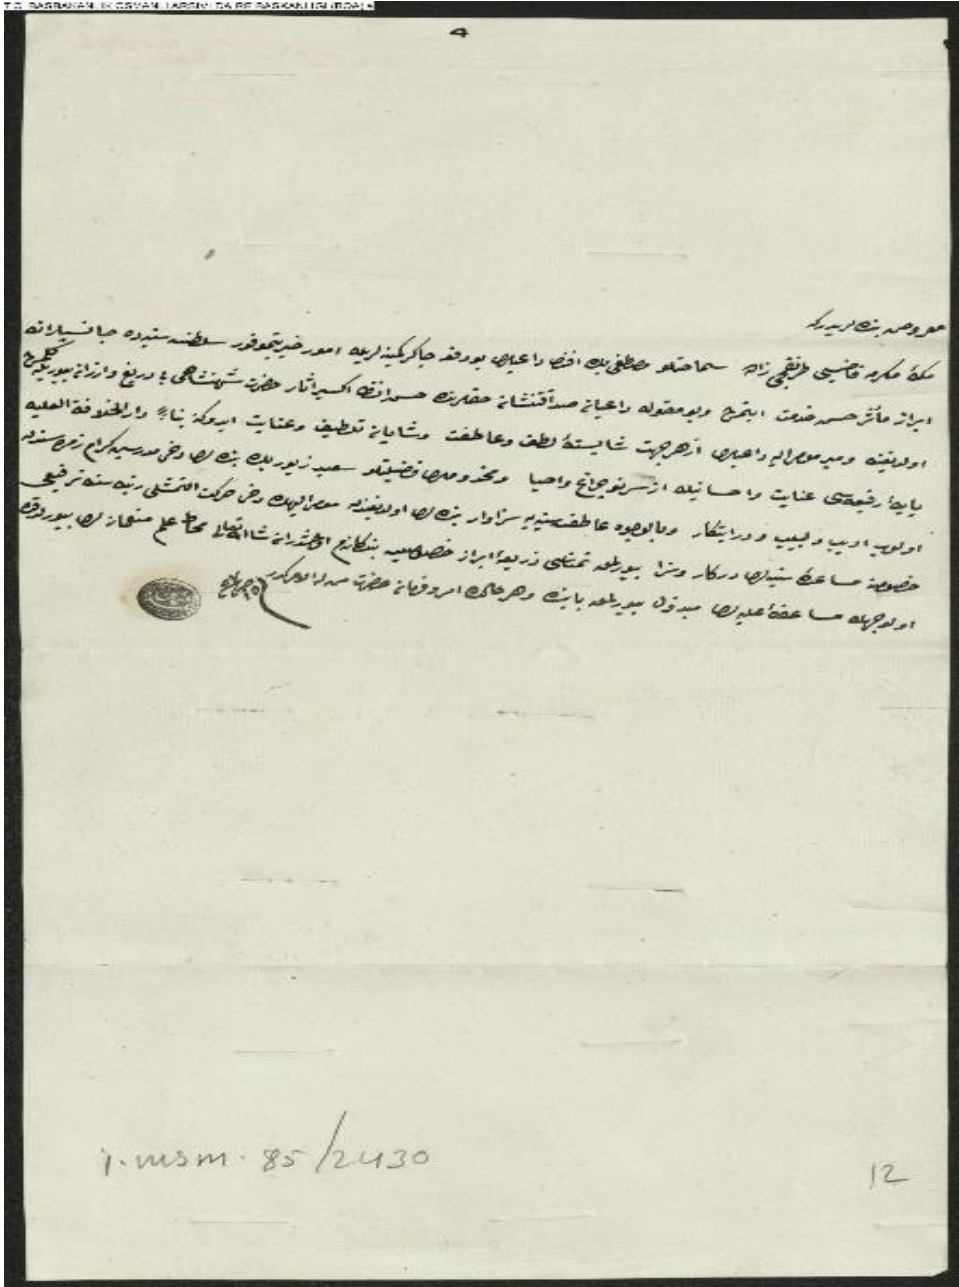 T.C. BAŞBAKANLIK OSMANLI ARŞİVİ DAİRE BAŞKANLIĞI (BOA)
معروض بنده لریدركه
مكهٔ مكرمه قاضیسی زاده سماحتلو مصطفی بك افندی داعیلری بو دفعه چاكر كمینه لریله امور خیریتموفور سلطنت سنیه ده
ابراز مآثر حسن خدمت ایتمش وبو مقوله داعیان صداقتنشان حقلرنده حسن انظار اكسیر آثار حضرت شهنشاهی بی دریغ وارزان بیوریله كلمش
اولدیغنه ومیر مومی الیه داعیلری از هر جهت شایستهٔ لطف وعاطفت وشایان تلطیف وعنایت ایدوكنه بناءً دار الخلافة العلیه
پایهٔ رفیعه سی عنایت واحسانیله از سر نو چراغ واحیا ومخدوملری فضیلتلو سعید بك بنده لری دخی مدرسین كرام زمره سندن
اولوب ادیب ولبیب وبالوجوه عاطفت سنیه یه سزاوار بنده لری اولدیغندن مومی الیهك دخی حركت التمشلی رتبه سنه ترفیعی
خصوصنه مساعدهٔ سنیه لری دركار وسزا بیورلمق تمناسی ذریعهٔ ابراز ان شاء الله تعالی محاط علم بیورلدقده
اولوجهله مساعدهٔ علیه لری مبذول بیورلمق بابنده وهر حالده امر وفرمان حضرت من له الامركدر
İ.MSM. 85/2430
12